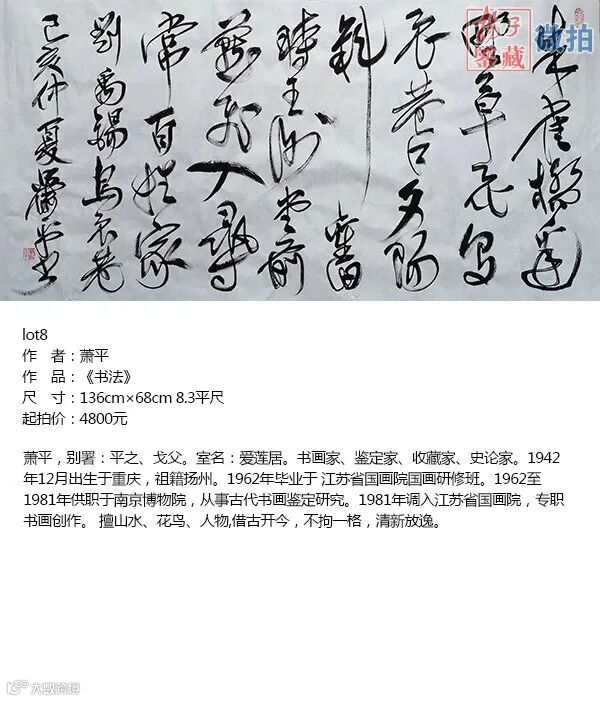 朱雀橋邊
野草花烏
衣巷口夕陽
斜舊
時王謝堂前
燕飛入尋
常百姓家
劉禹錫烏衣巷
己亥仲夏蕭平書
鉴藏
微拍
lot8
作 者：萧平
作 品：《书法》
尺 寸：136cm×68cm 8.3平尺
起拍价：4800元
萧平，别署：平之、戈父。室名：爱莲居。书画家、鉴定家、收藏家、史论家。1942
年12月出生于重庆，祖籍扬州。1962年毕业于 江苏省国画院国画研修班。1962至
1981年供职于南京博物院，从事古代书画鉴定研究。1981年调入江苏省国画院，专职
书画创作。 擅山水、花鸟、人物,借古开今，不拘一格，清新放逸。
大数跨境